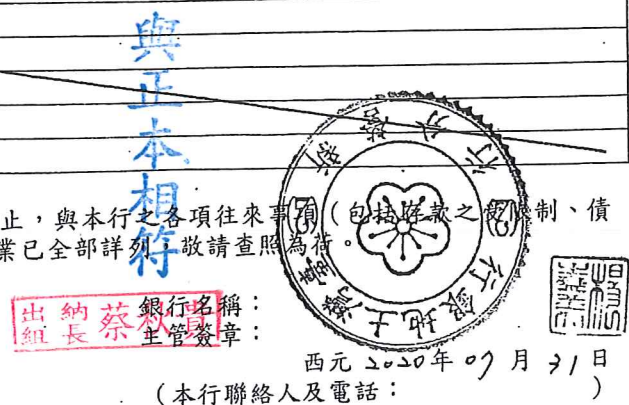 與正本相符
止,與本行之各項往來事項(包括存款之受限制、債
業已全部詳列,敬請查照為荷。
臺灣土地銀行
新營分行
出納組長 蔡秋貴
銀行名稱:
主管簽章:
西元 2020年 07 月 31 日
(本行聯絡人及電話: )